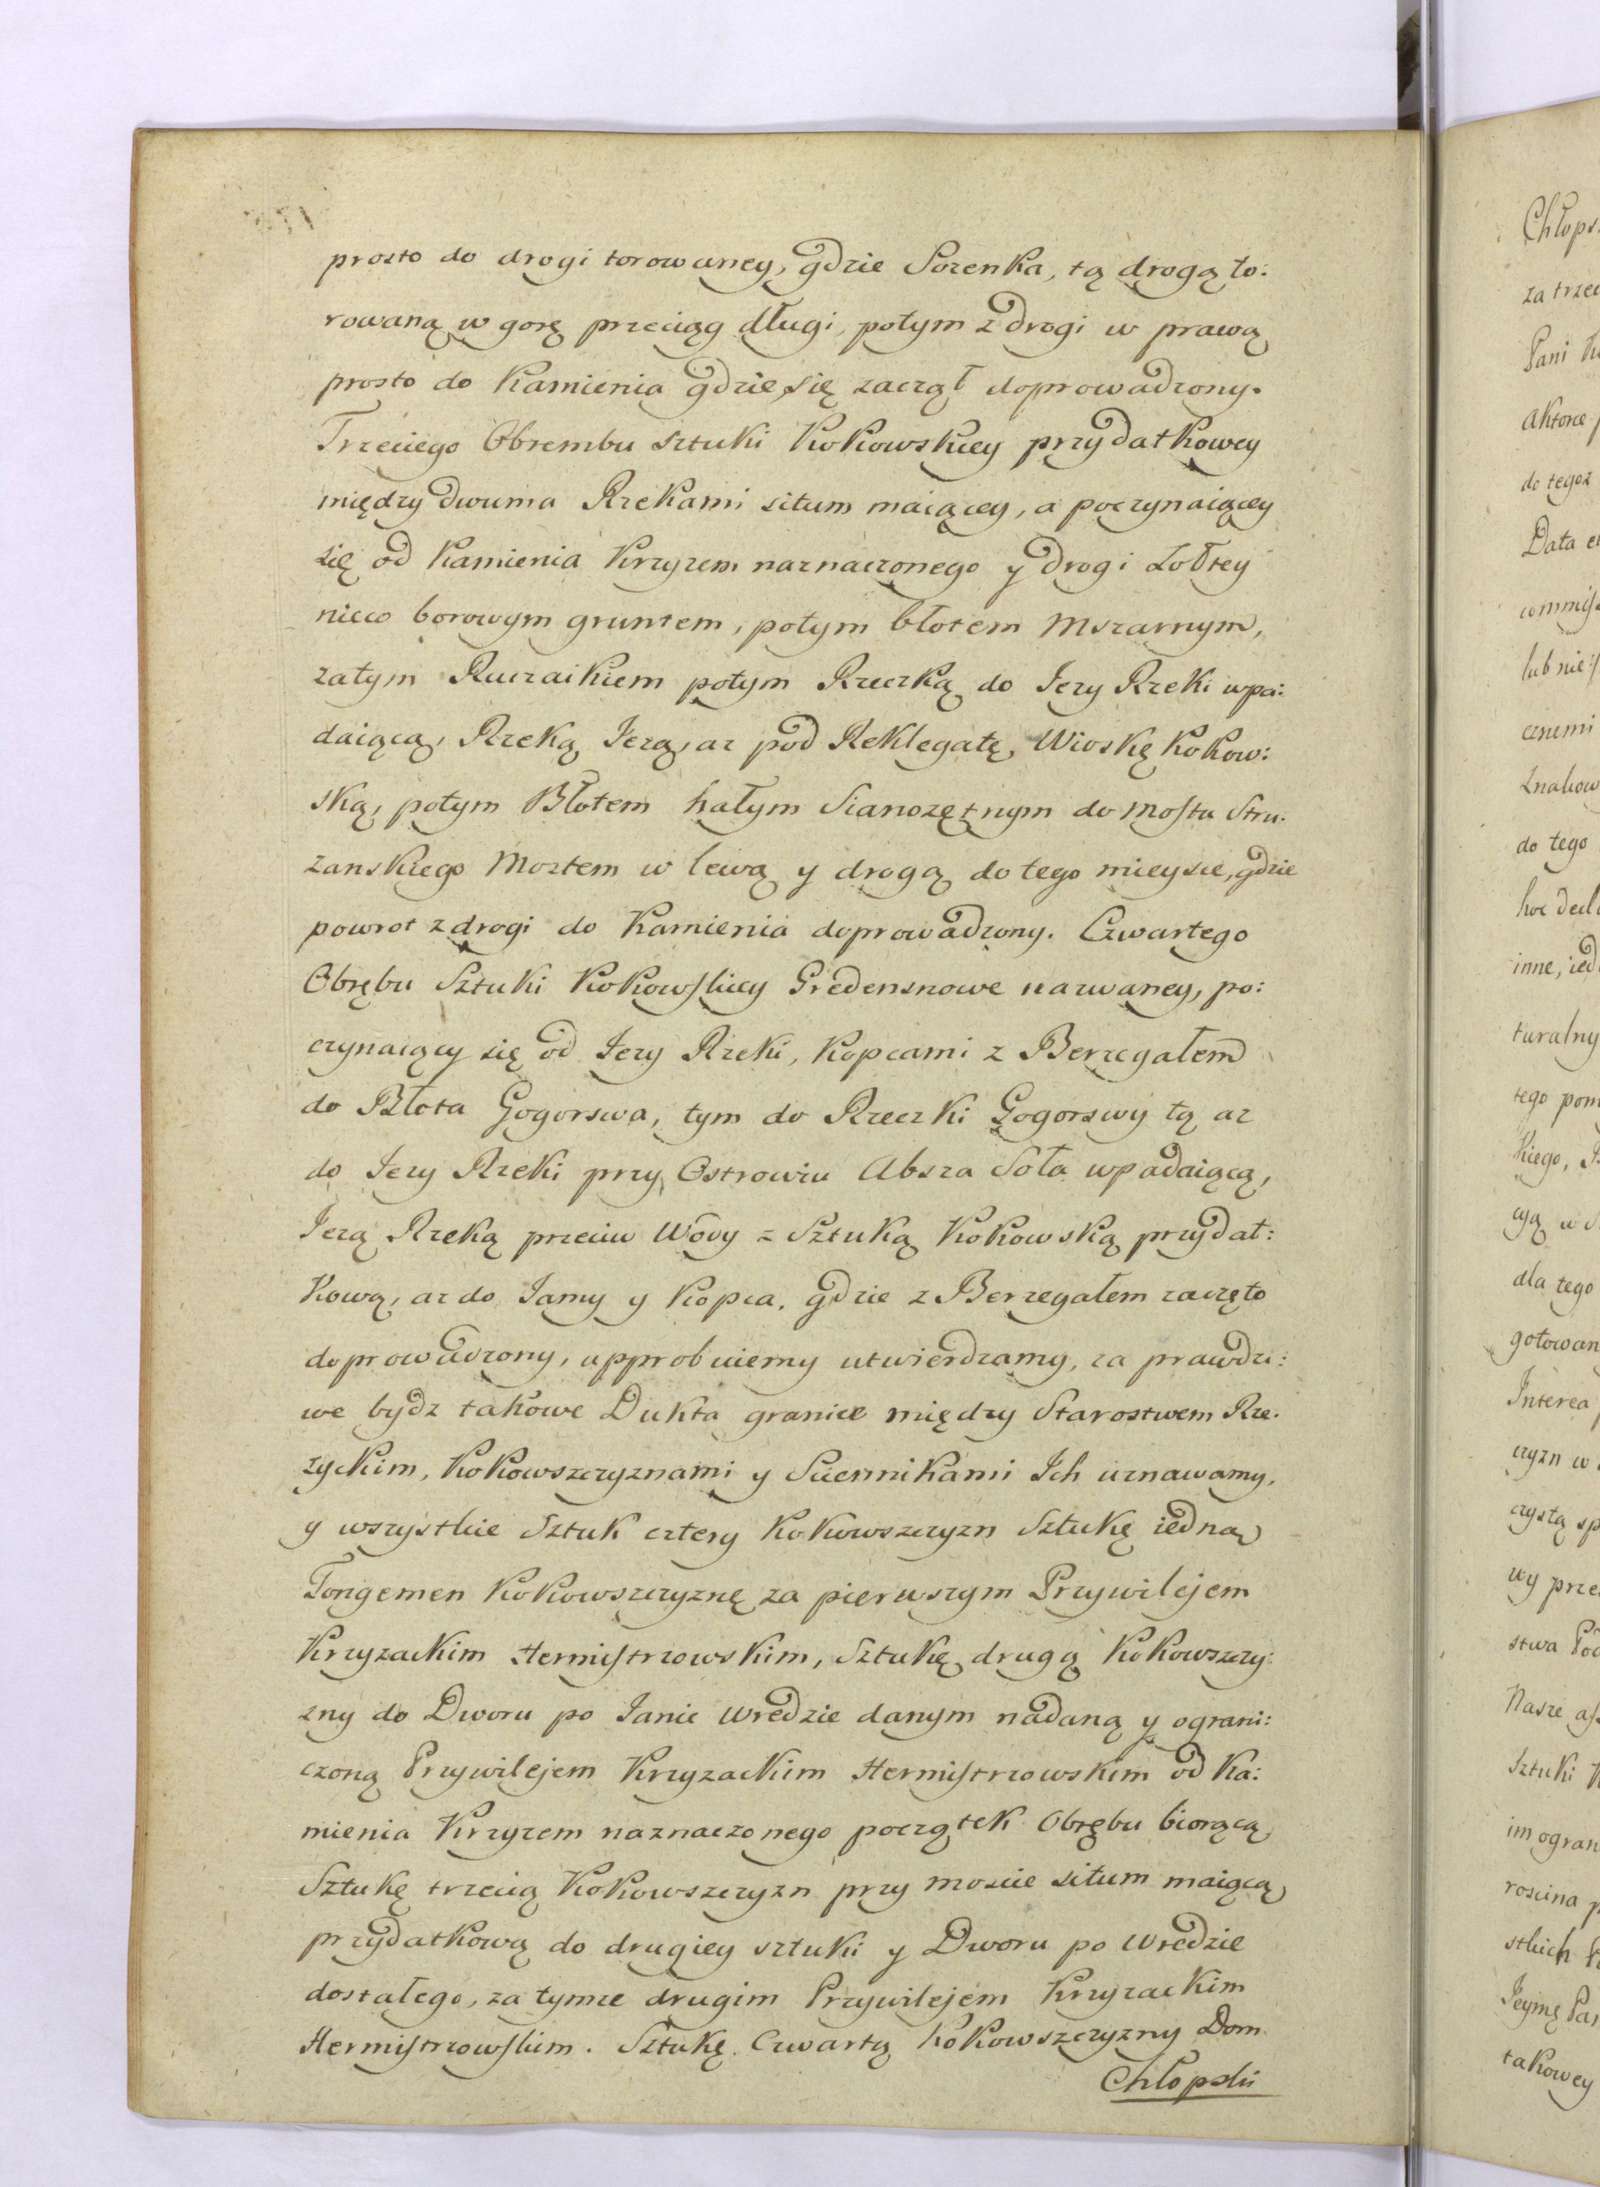 prosto do drogi torowaney, gdzie Sozenka, tą drogą to:
rowaną w gorę przeciąg długi, potym z drogi w prawą
prosto do Kamienia gdzie się zaczął doprowadzony.
Trzeciego Obrembu sztuki Kokowskiey przydatkowey
między dwuma Rzekami situm maiącey, a poczynaiącey
się od Kamienia Krzyzem naznaczonego y drogi Łoftey
nieco borowym gruntem, potym błotem Mszarnym,
zatym Ruczaikiem potym Rzeczką do Jezy Rzeki wpa:
daiącą, Rzeką Jezą, az pod Reklegatę, Wioskę Kokow:
ską, potym Błotem hałym Sianozętnym do Mostu Stru:
zanskiego Mostem w lewą y drogą do tego mieysce, gdzie
powrot z drogi do Kamienia doprowadzony. Czwartego
Obrębu Sztuki Kokowskiey Gredensnowe nazwaney, po:
czynaiący się od Jezy Rzeki, Kopcami z Berzegałem
do Błota Gogorswa, tym do Rzeczki Gogorswy tą az
do Jezy Rzeki przy Ostrowiu Absza Soła wpadaiącą,
Jezą Rzeką przeciw Wody z Sztuką Kokowską przydat:
kową, az do Jamy y Kopca, gdzie z Berzegałem zaczęto
doprowadzony, approbuiemy utwierdzamy, za prawdzi:
we bydz takowe Dukta granice między Starostwem Rze:
zyckim, Kokowszczyznami y Sciennikami Ich uznawamy,
y wszystkie Sztuk cztery Kokowszczyzn Sztukę iedną
Tongemen Kokowszczyznę za pierwszym Przywilejem
Krzyzackim Hermistrzowskim, Sztukę drugą Kokowszczy:
zny do Dworu po Janie Wredzie danym nadaną y ograni:
czoną Przywilejem Krzyzackim Hermistrzowskim od Ka:
mienia Krzyzem naznaczonego początek Obrębu biorącą
Sztukę trzecią Kokowszczyzn przy moscie situm maiącą
przydatkową do drugiey sztuki y Dworu po Wredzie
dostałego, za tymze drugim Przywilejem Krzyzackim
Hermistrzowskim. Sztukę Czwartą Kokowszczyzny Dom
Chłopski